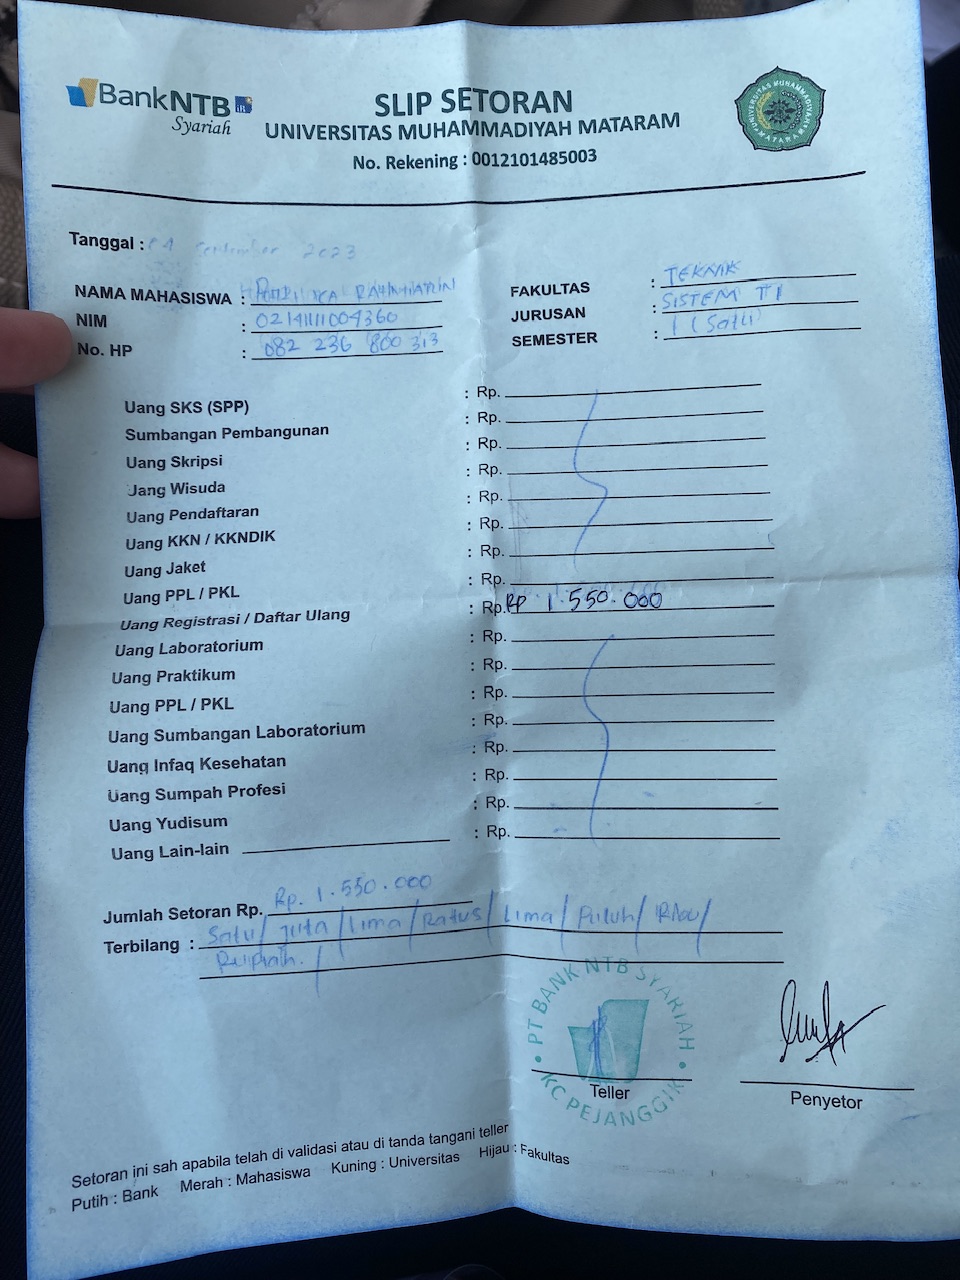 BankNTB
Syariah
SLIP SETORAN
UNIVERSITAS MUHAMMADIYAH MATARAM
No. Rekening : 0012101485003
UNIVERSITAS MUHAMMADIYAH MATARAM
Tanggal : 04 September 2023
NAMA MAHASISWA :
NIM : 0214111004360
No. HP : 082 236 800 313
FAKULTAS : TEKNIK
JURUSAN : SISTEM TI
SEMESTER : 1 (Satu)
Uang SKS (SPP) : Rp.
Sumbangan Pembangunan : Rp.
Uang Skripsi : Rp.
Uang Wisuda : Rp.
Uang Pendaftaran : Rp.
Uang KKN / KKNDIK : Rp.
Uang Jaket : Rp.
Uang PPL / PKL : Rp.
Uang Registrasi / Daftar Ulang : Rp. RP 1.550.000
Uang Laboratorium : Rp.
Uang Praktikum : Rp.
Uang PPL / PKL : Rp.
Uang Sumbangan Laboratorium : Rp.
Uang Infaq Kesehatan : Rp.
Uang Sumpah Profesi : Rp.
Uang Yudisum : Rp.
Uang Lain-lain : Rp.
Jumlah Setoran Rp. Rp. 1.550.000
Terbilang : Satu / juta / Lima / Ratus / Lima / Puluh / Ribu /
Rupiah. /
PT BANK NTB SYARIAH
KC PEJANGGIK
Teller
Penyetor
Setoran ini sah apabila telah di validasi atau di tanda tangani teller
Putih : Bank Merah : Mahasiswa Kuning : Universitas Hijau : Fakultas